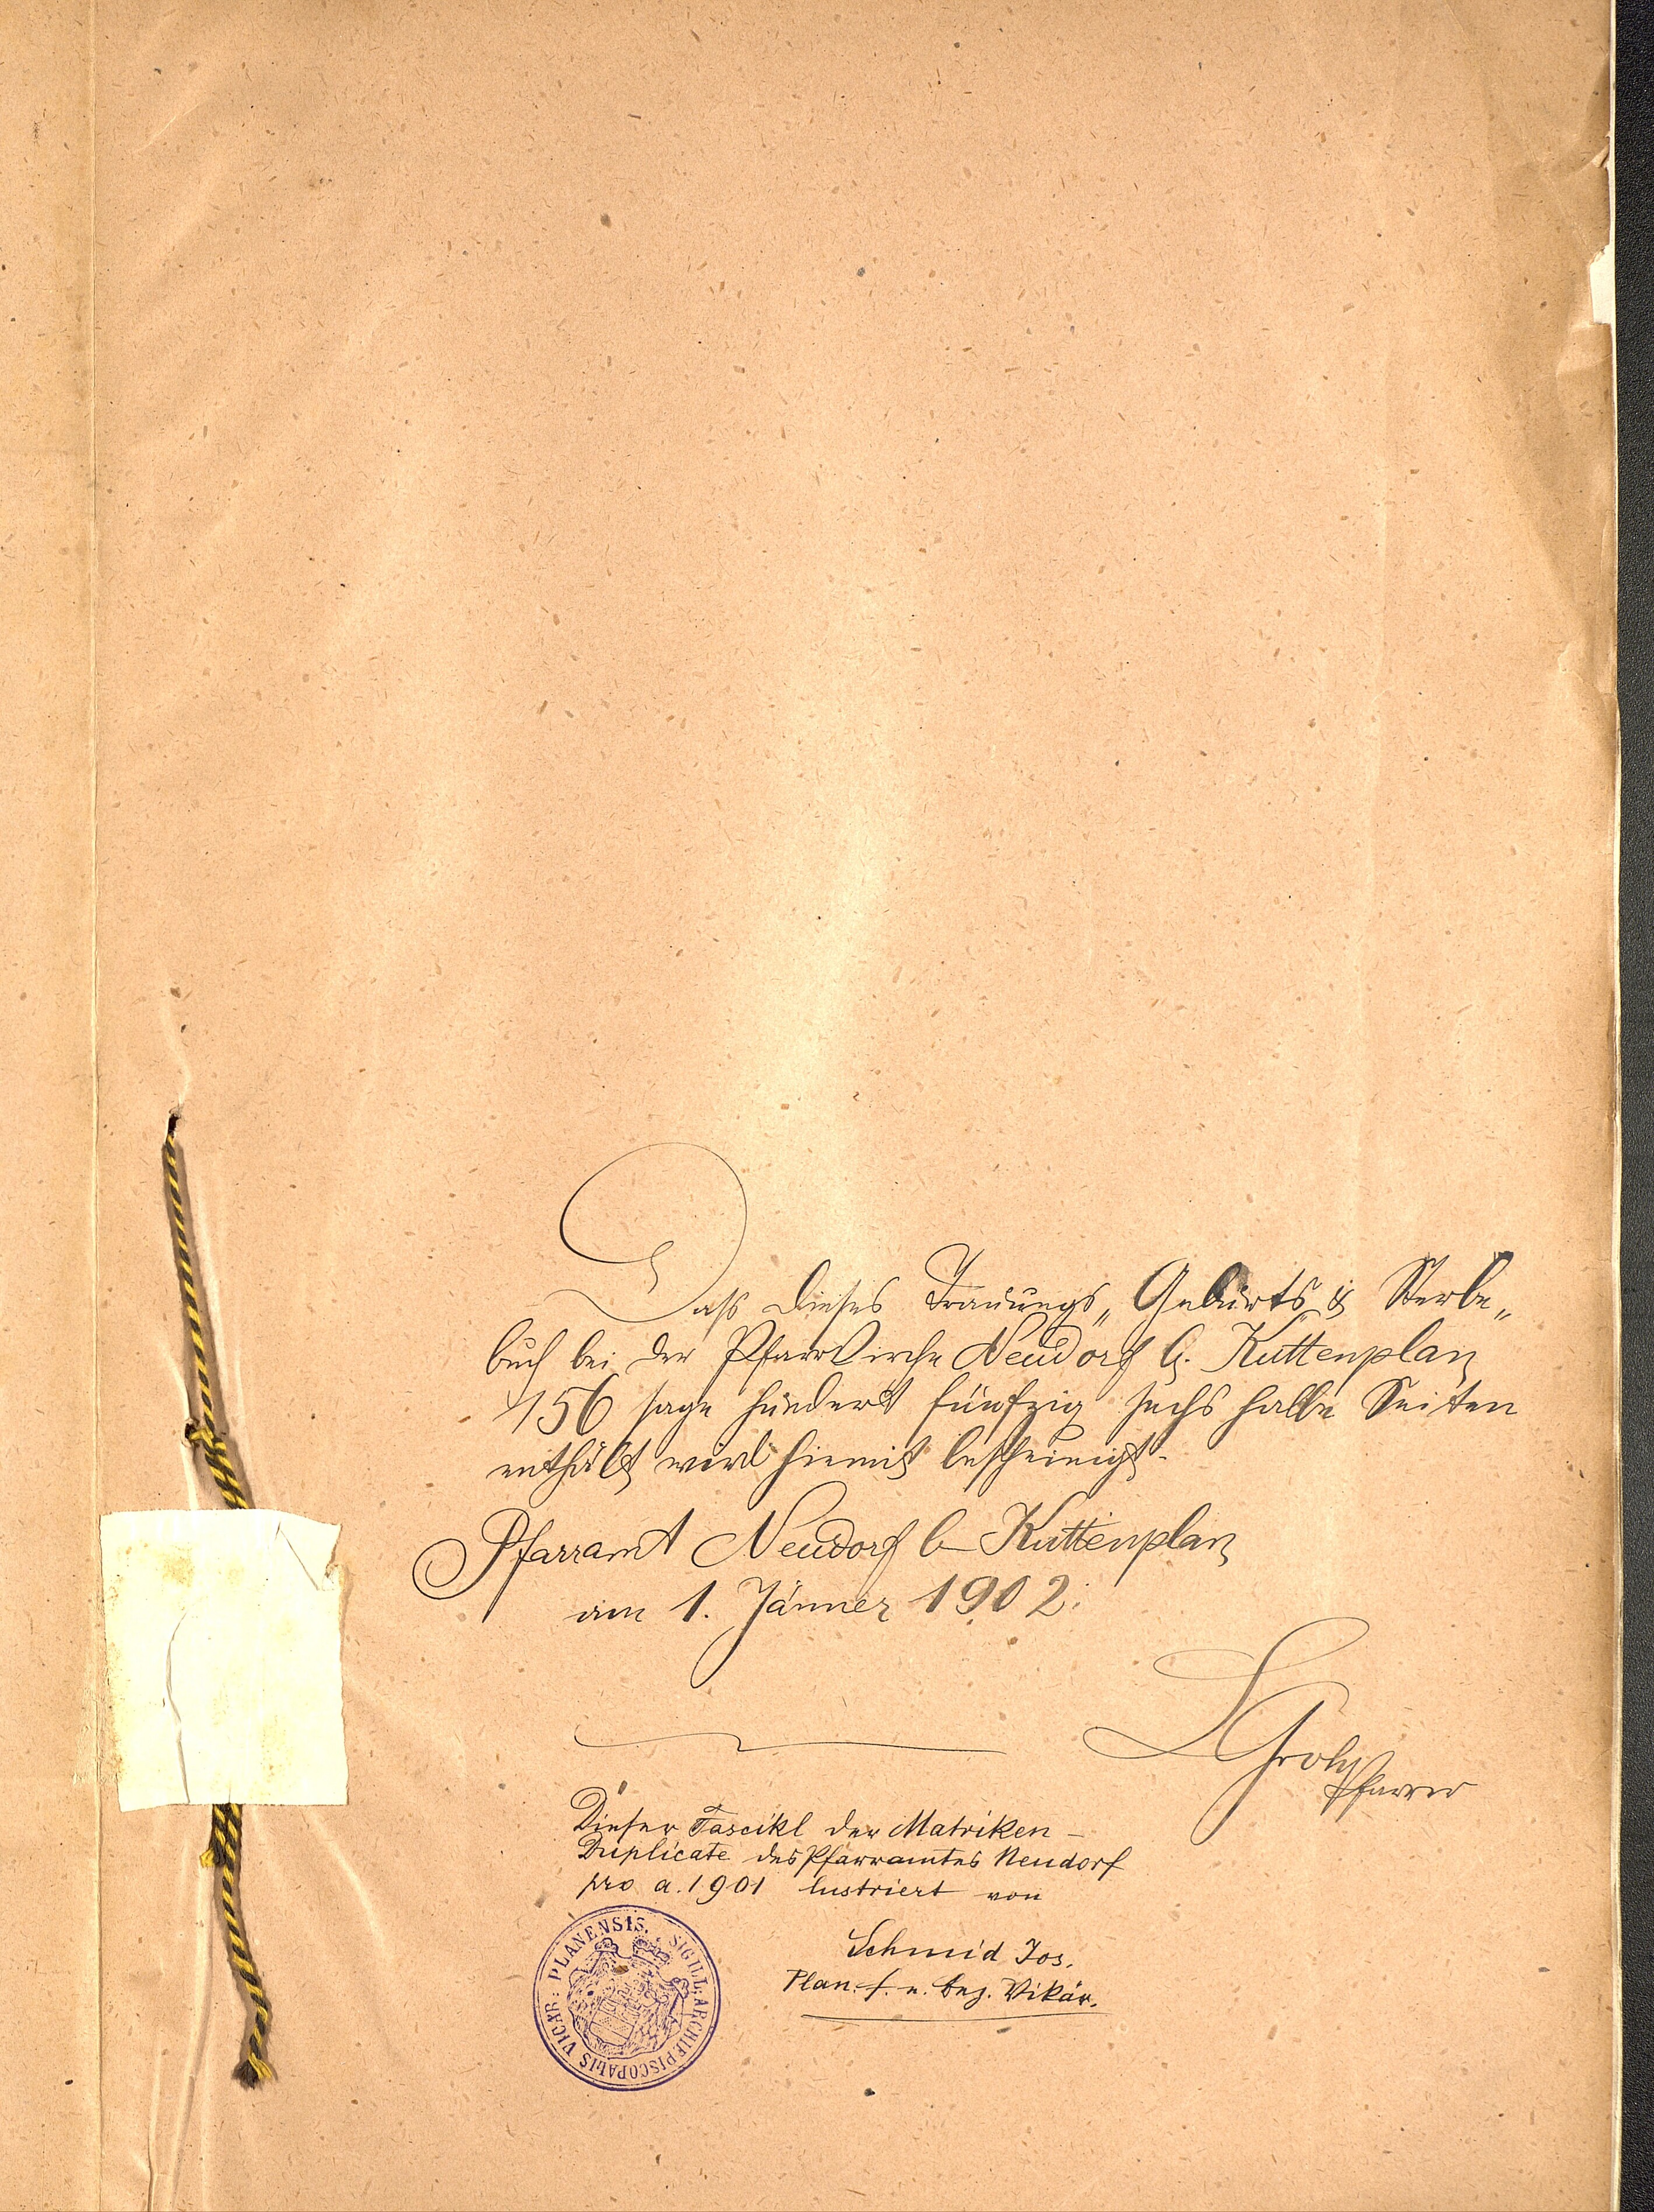 Dass dieses Trauungs„ Geburts & Sterbe„
buch bei der Pfarrkirche Neudorf b. Kuttenplan
156 sage hundert fünfzig sechs halbe Seiten
enthält wird hiemit bescheinigt.
Pfarramt Neudorf b Kuttenplan
am 1. Jänner 1902.
Pfarrer
Dieser Fascikl der Matriken-
Duplicate des Pfarramtes Neudorf
pro a. 1901 lustriert von
Schmid Jos.
Plan. f. e. bez. Vikär.
SIGILL: ARCHIEPISCOPALIS VICAR: PLANENSIS.